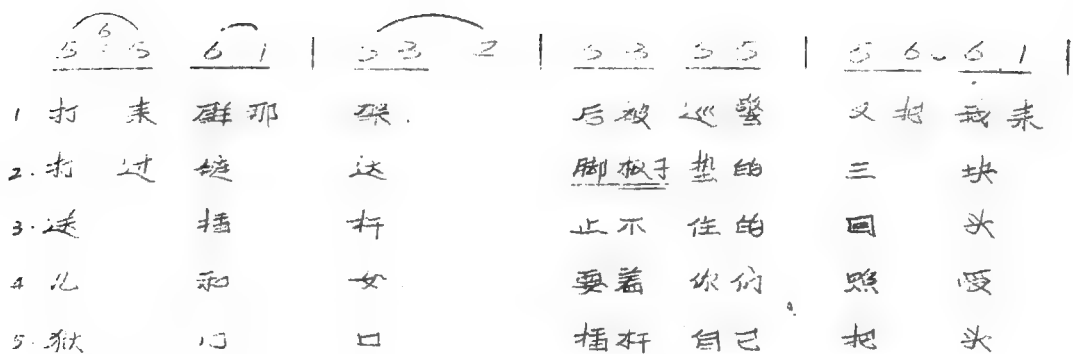 5 6 5 6 1 | 5 3 2 | 5 3 3 5 | 5 6 6 1 |
1 打 来 那 后被巡警 又把我来
2. 打 过 达 脚板子垫的 三 块
3. 送 插 杆 止不住的 回 头
4 儿 和 女 要着你们 照 受
5. 狱 门 口 插杆自己 把 头